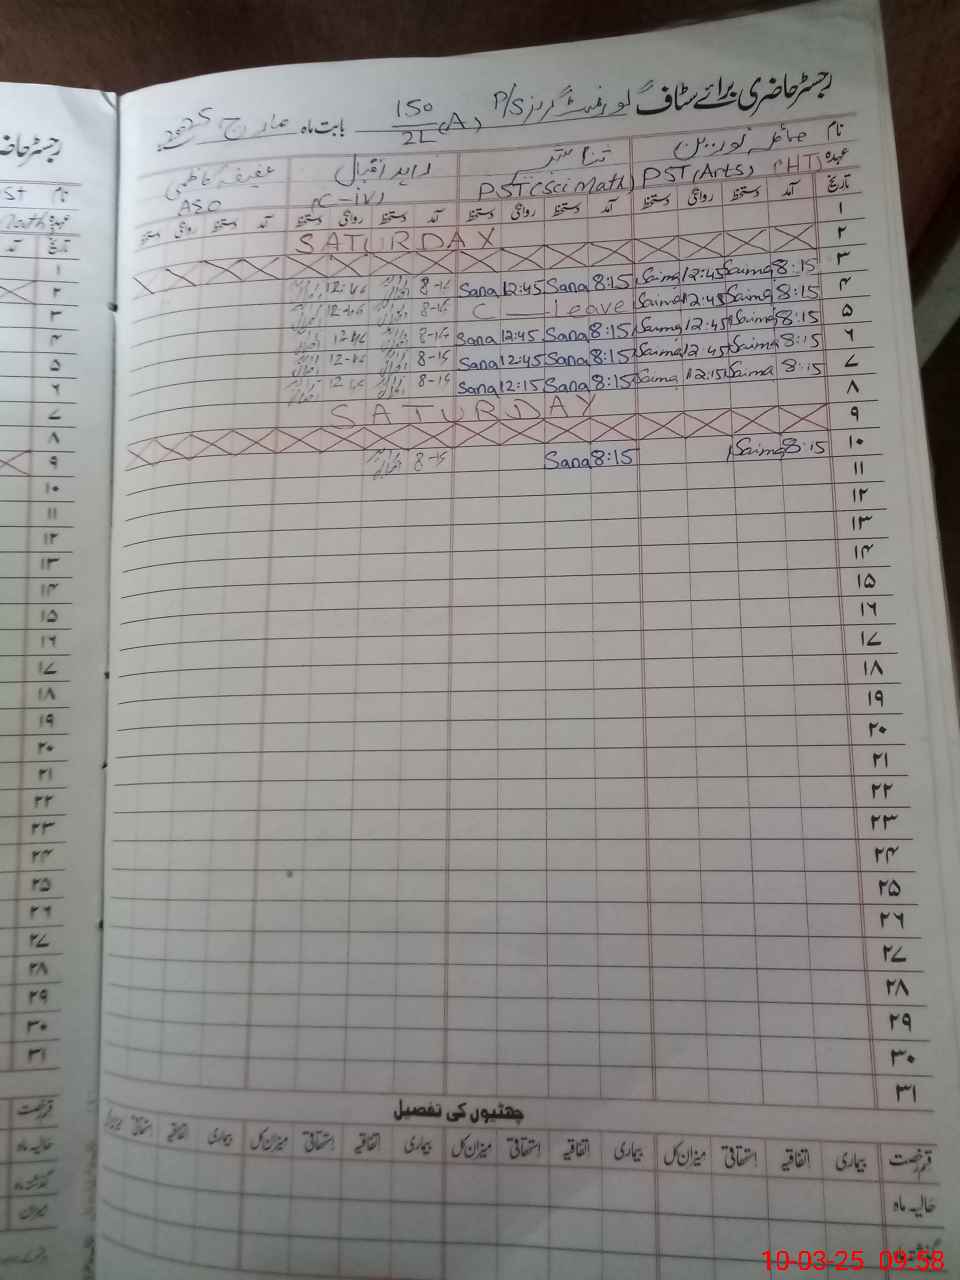 رجسٹر حاضری برائے سٹاف گورنمنٹ گرلز P/S 150/2L (A) بابت ماہ مارچ 2025
نام صائمہ نورین ثنا زاہد اقبال عفیفہ کاظمی
عہدہ PST(Arts) (HT) PST(Sci Math) (C-iv) ASO
تاریخ آمد دستخط روانگی دستخط آمد دستخط روانگی دستخط آمد دستخط روانگی دستخط آمد دستخط روانگی دستخط
۱ SATURDAY
۲
۳ 8:15 Saima 12:45 Saima 8:15 Sana 12:45 Sana 8-15
۴ 8:15 Saima 12:45 Saima C — Leave 8-15
۵ 8:15 Saima 12:45 Saima 8:15 Sana 12:45 Sana
۶ 8:15 Saima 12:45 Saima 8:15 Sana 12:45 Sana 8-15
۷ 8:15 Saima 12:15 Saima 8:15 Sana 12:15 Sana 8-15
۸ SATURDAY
۹
۱۰ 8:15 Saima 8:15 Sana 8-15
۱۱
۱۲
۱۳
۱۴
۱۵
۱۶
۱۷
۱۸
۱۹
۲۰
۲۱
۲۲
۲۳
۲۴
۲۵
۲۶
۲۷
۲۸
۲۹
۳۰
۳۱
چھٹیوں کی تفصیل
قسم رخصت بیماری اتفاقیہ استحقاقی میزان کل بیماری اتفاقیہ استحقاقی میزان کل بیماری اتفاقیہ استحقاقی میزان کل بیماری اتفاقیہ استحقاقی
حالیہ ماہ
گذشتہ ماہ
رجسٹر حاضری
نام
تاریخ آمد
۱
۲
۳
۴
۵
۶
۷
۸
۹
۱۰
۱۱
۱۲
۱۳
۱۴
۱۵
۱۶
۱۷
۱۸
۱۹
۲۰
۲۱
۲۲
۲۳
۲۴
۲۵
۲۶
۲۷
۲۸
۲۹
۳۰
۳۱
قسم رخصت
حالیہ ماہ
گذشتہ ماہ
میزان
10-03-25 09:58